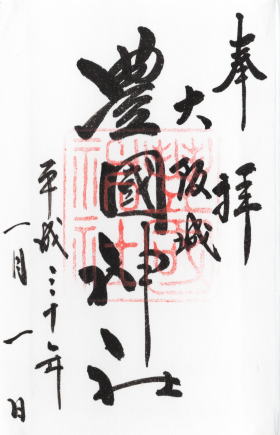 奉拝
大阪城
豊國神社
平成
一月一日